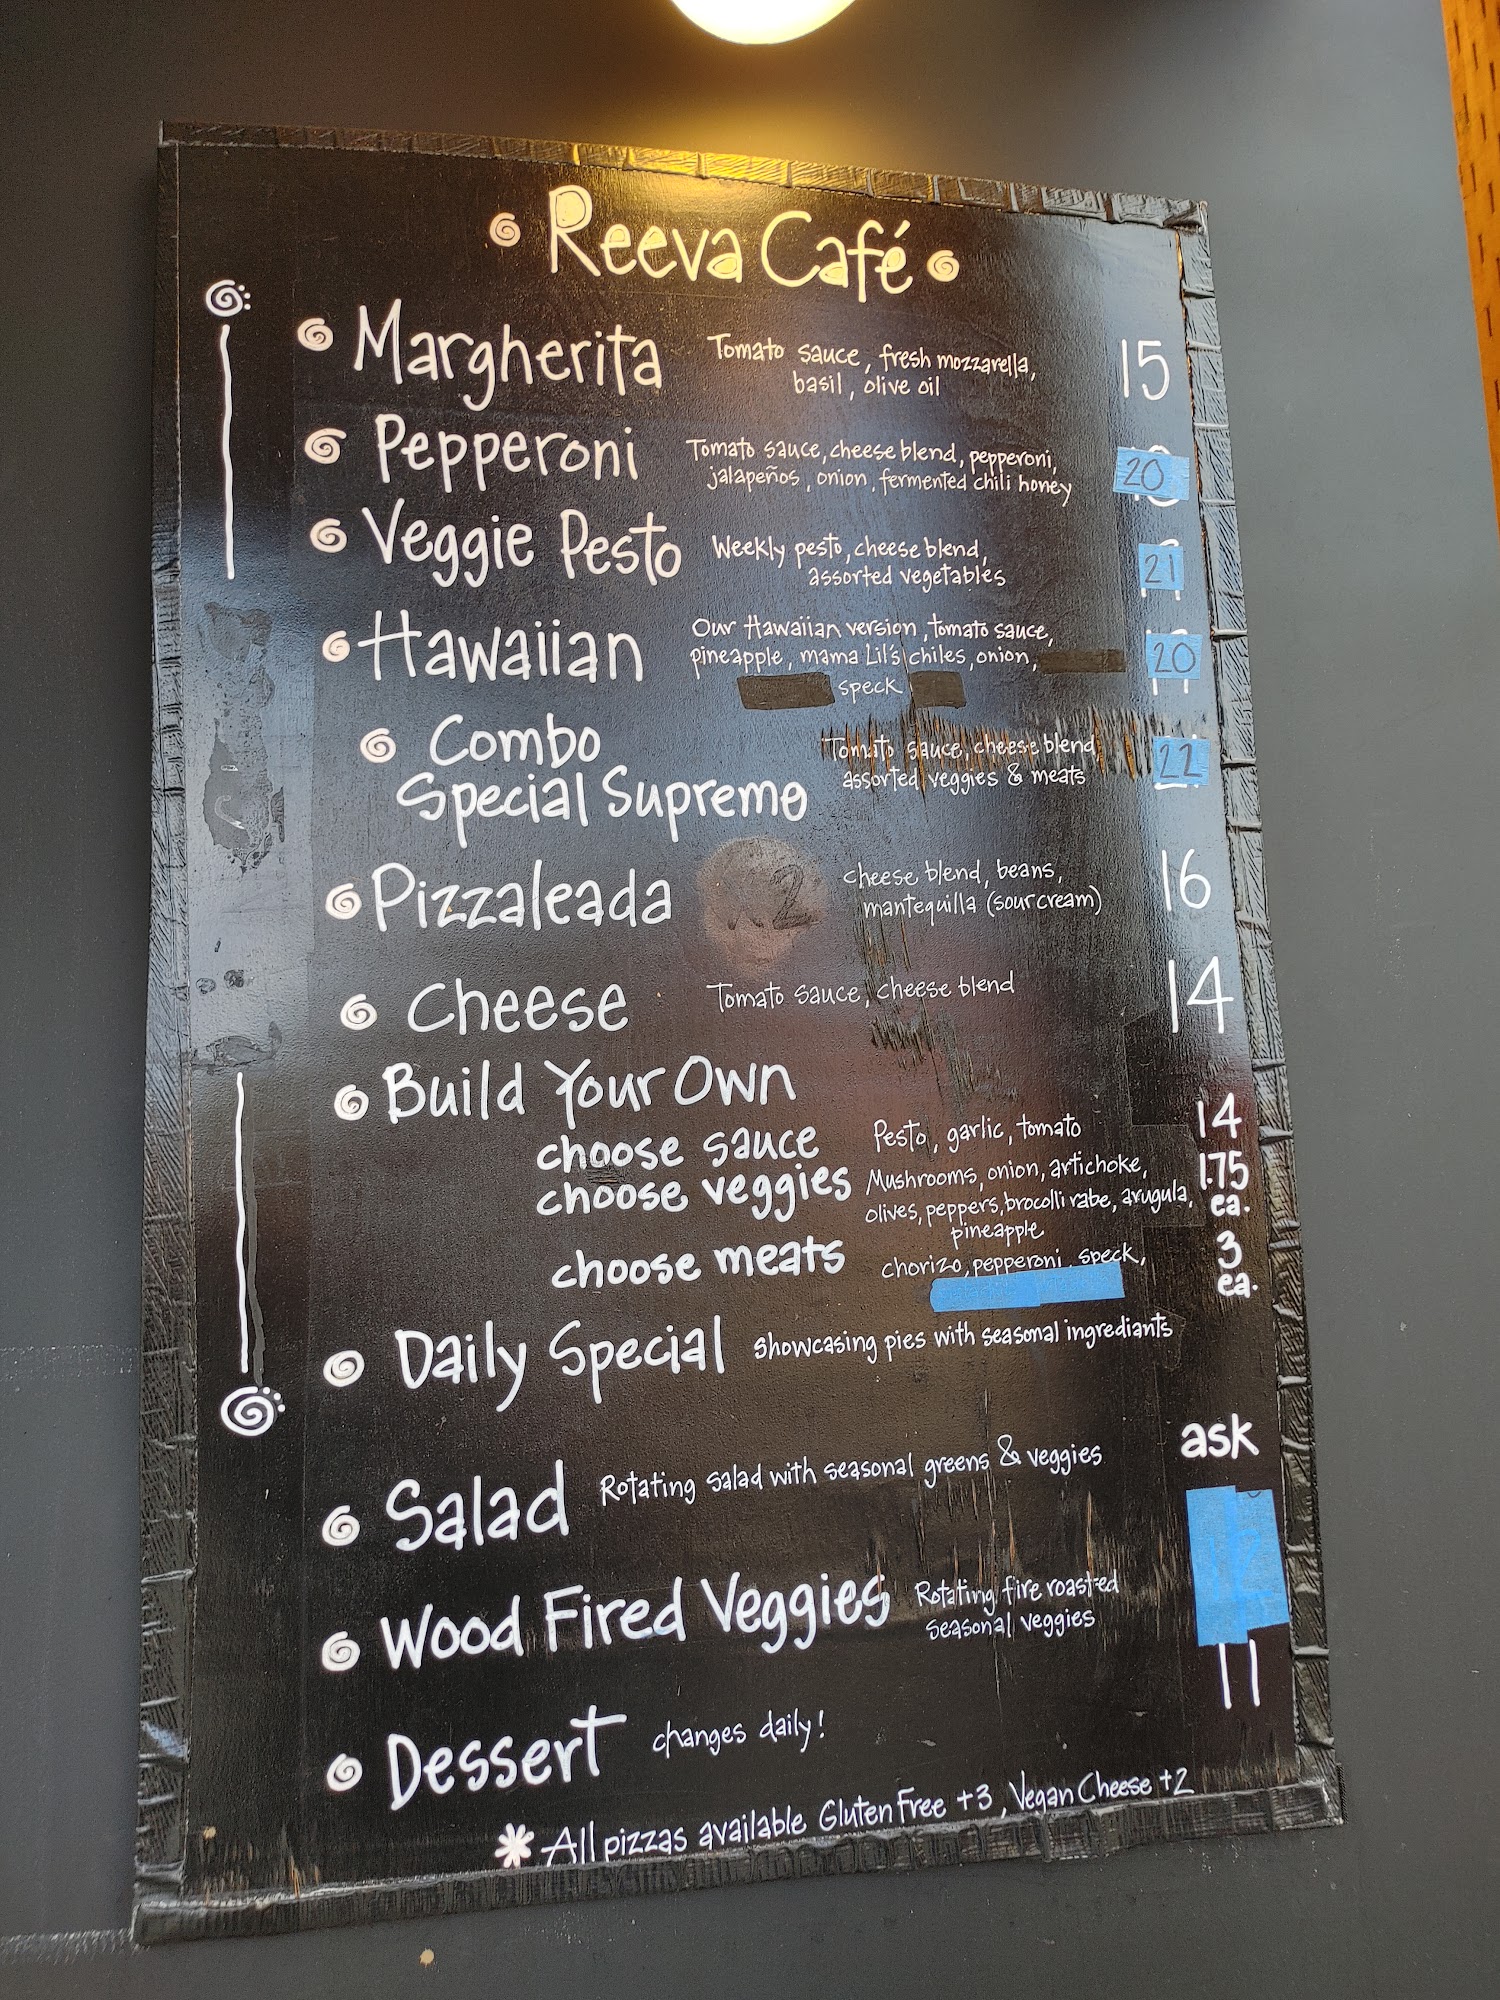 Reeva Café
Margherita
Tomato sauce, fresh mozzarella,
basil, olive oil
15
Pepperoni
Tomato sauce, cheese blend, pepperoni,
jalapeños, onion, fermented chili honey
20
Veggie Pesto
Weekly pesto, cheese blend,
assorted vegetables
21
Hawaiian
Our Hawaiian version, tomato sauce,
pineapple, mama Lil's chiles, onion,
speck
20
Combo
Special Supremo
Tomato sauce, cheese blend
assorted veggies & meats
22
Pizzaleada
cheese blend, beans,
mantequilla (sour cream)
16
Cheese
Tomato sauce, cheese blend
14
Build Your Own
choose sauce
Pesto, garlic, tomato
14
choose veggies
Mushrooms, onion, artichoke,
olives, peppers, brocolli rabe, arugula,
pineapple
1.75
ea.
choose meats
chorizo, pepperoni, speck,
3
ea.
Daily Special
showcasing pies with seasonal ingrediants
ask
Salad
Rotating salad with seasonal greens & veggies
Wood Fired Veggies
Rotating fire roasted
seasonal veggies
11
Dessert
changes daily!
* All pizzas available Gluten Free +3, Vegan Cheese +2